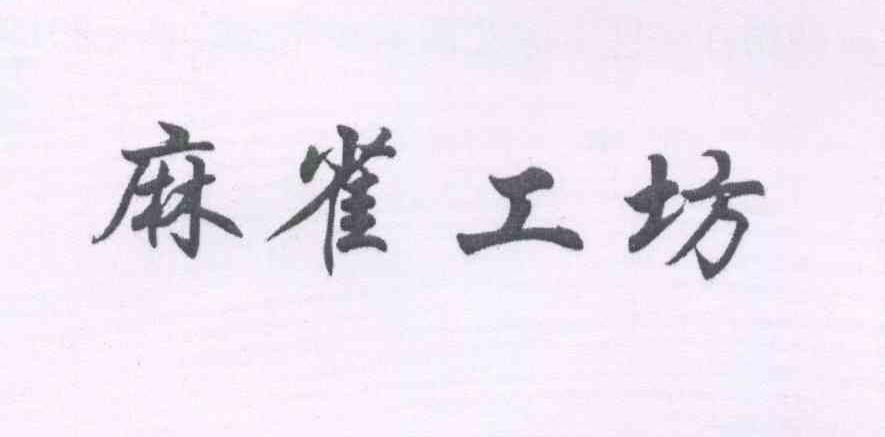 麻雀工坊